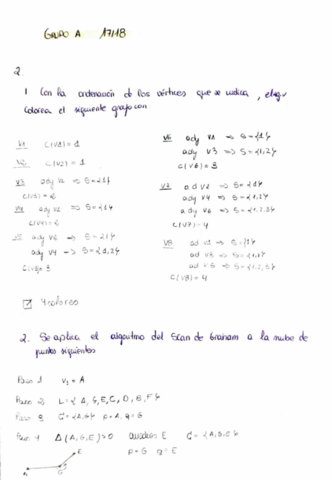 GRUPO A 17/18
2.
1 Con la ordenación de los vértices que se indica,
colorea el siguiente grafo con
V1 C(V1) = 1
V2 C(V2) = 1
V3 adj V2 => S={1}
C(V3) = 2
V4 adj V2 => S={1}
C(V4) = 2
V5 adj V2 => S={1}
adj V4 -> S={1,2}
C(V5) = 3
V6 adj V1 => S={1}
adj V3 => S={1,2}
C(V6) = 3
V7 ad V2 => S={1}
adj V4 => S={1,2}
adj V6 => S={1,2,3}
C(V7) = 4
V8 ad V1 -> S={1}
ad V3 => S={1,2}
ad V5 => S={1,2,3}
C(V8) = 4
4 colores
2. Se aplica el algoritmo del Scan de Graham a la nube de
puntos siguientes
Paso 1 V1 = A
Paso 2 L={A, G, E, C, D, B, F}
Paso 3 C={A,G} P=A, q=G
Paso 4 Δ(A,G,E)>0 C={A,G,E}
P=G q=E
A
G
E